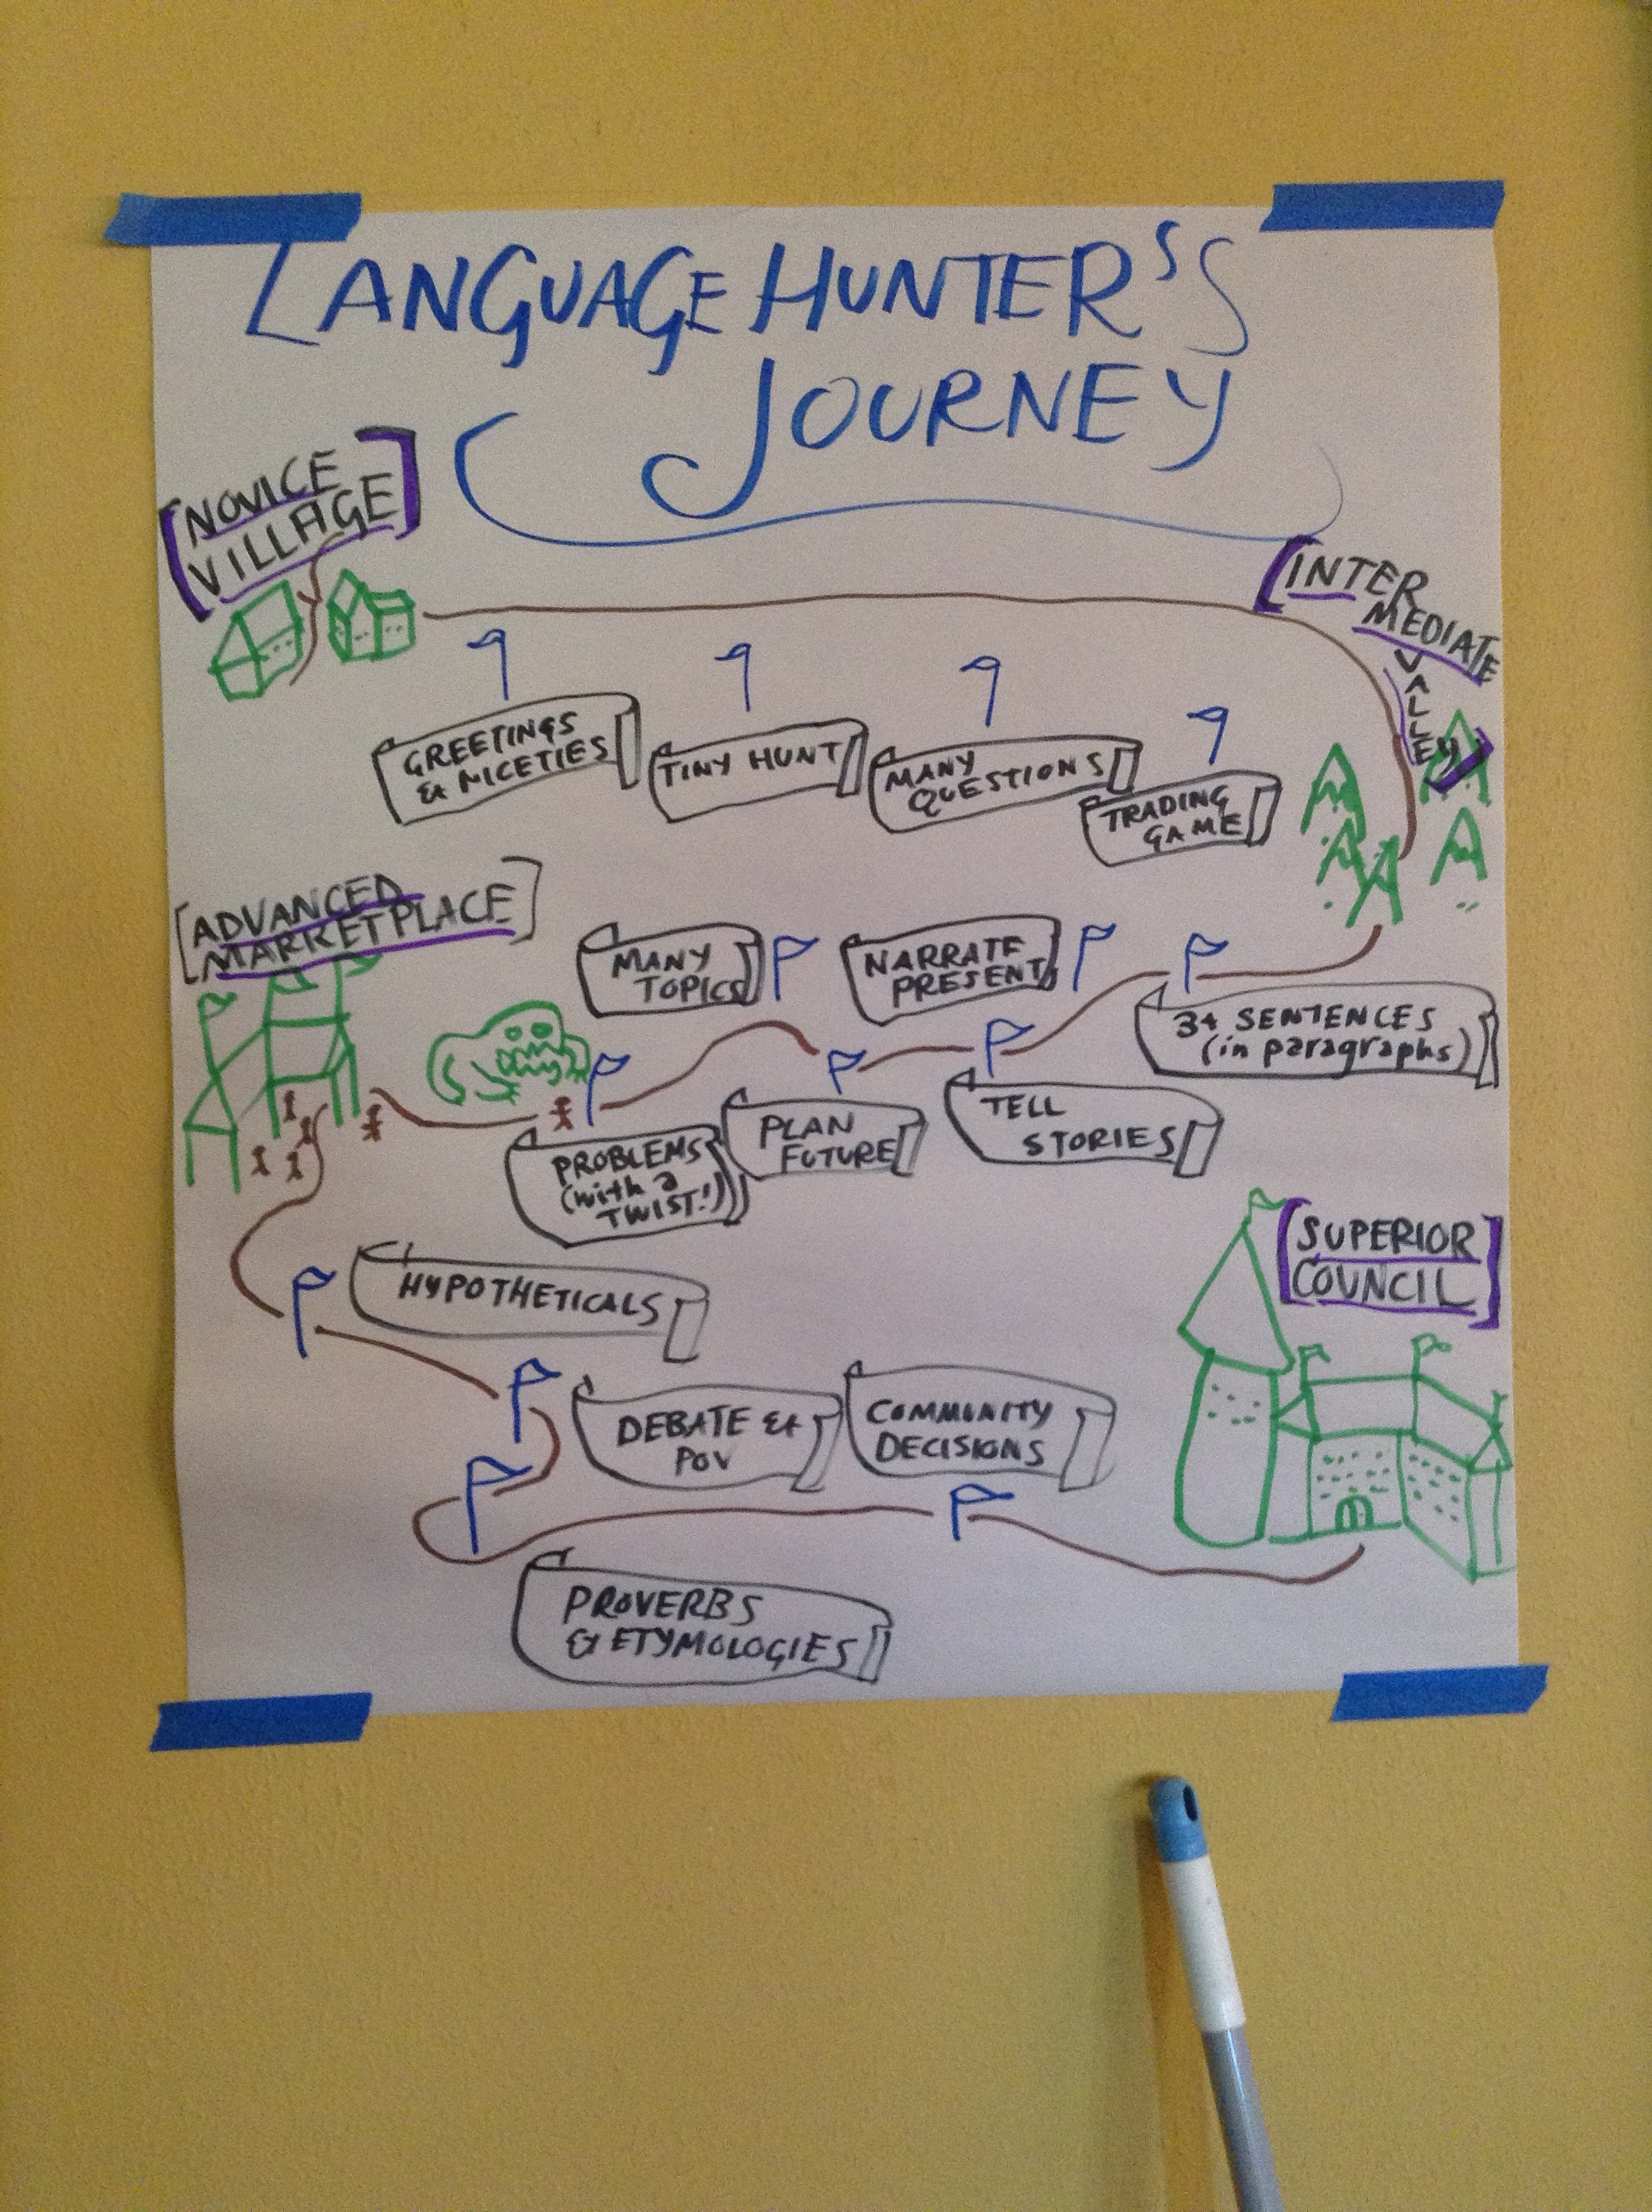 LANGUAGE HUNTER'S
JOURNEY
[NOVICE
VILLAGE]
[INTER
MEDIATE
VALLEY]
GREETINGS
& NICETIES
TINY HUNT
MANY
QUESTIONS
TRADING
GAME
[ADVANCED
MARKETPLACE]
MANY
TOPICS
NARRATE
PRESENT
3+ SENTENCES
(in paragraphs)
TELL
STORIES
PLAN
FUTURE
PROBLEMS
(with a
TWIST!)
[SUPERIOR
COUNCIL]
HYPOTHETICALS
DEBATE &
POV
COMMUNITY
DECISIONS
PROVERBS
& ETYMOLOGIES